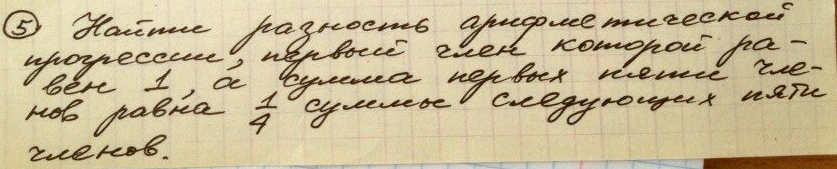 ⑤ Найти разность арифметической
прогрессии, первый член которой ра-
вен 1, а сумма первых пяти чле-
нов равна 1/4 суммы следующих пяти
членов.